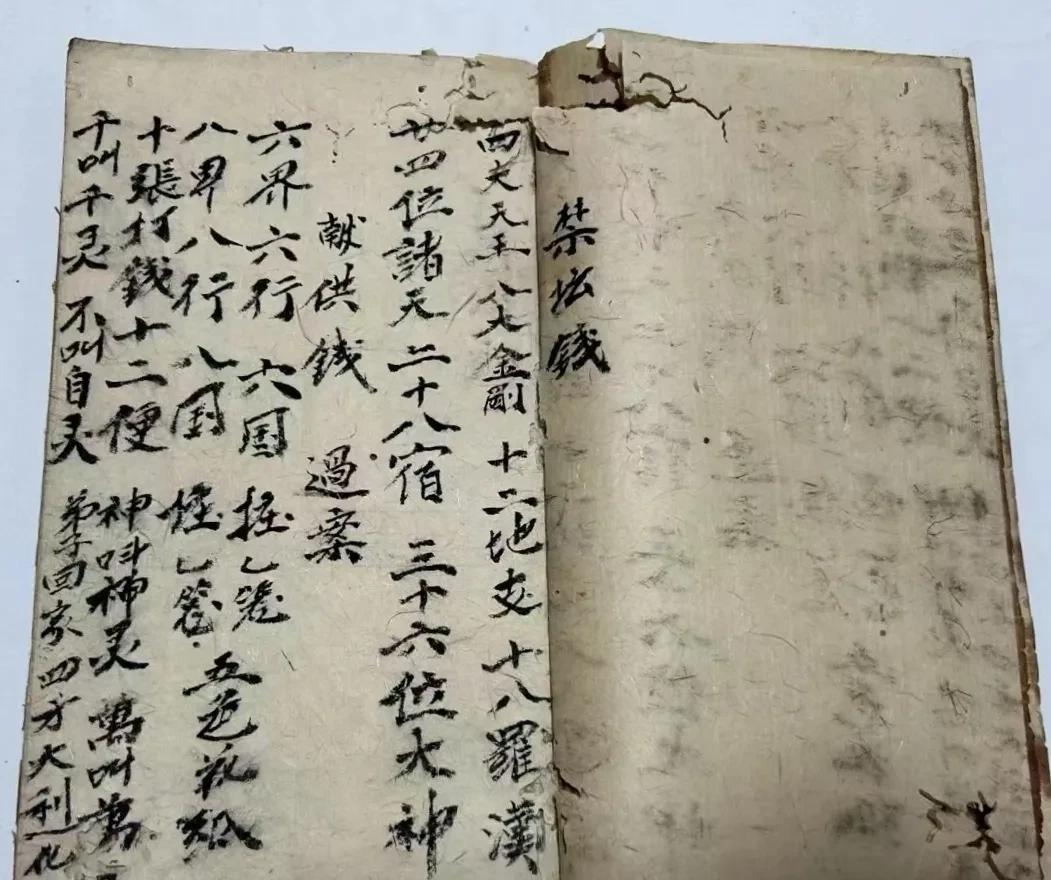 禁坛錢
四大天王 八大金剛 十二地支 十八羅漢
廿四位諸天 二十八宿 三十六位大神
献供錢 過案
六界六行 六国
八界八行 八国 五色衣
十張打錢十二便 神叫神灵 萬叫萬
千叫千灵 不叫自灵 弟子回家四方大利 化